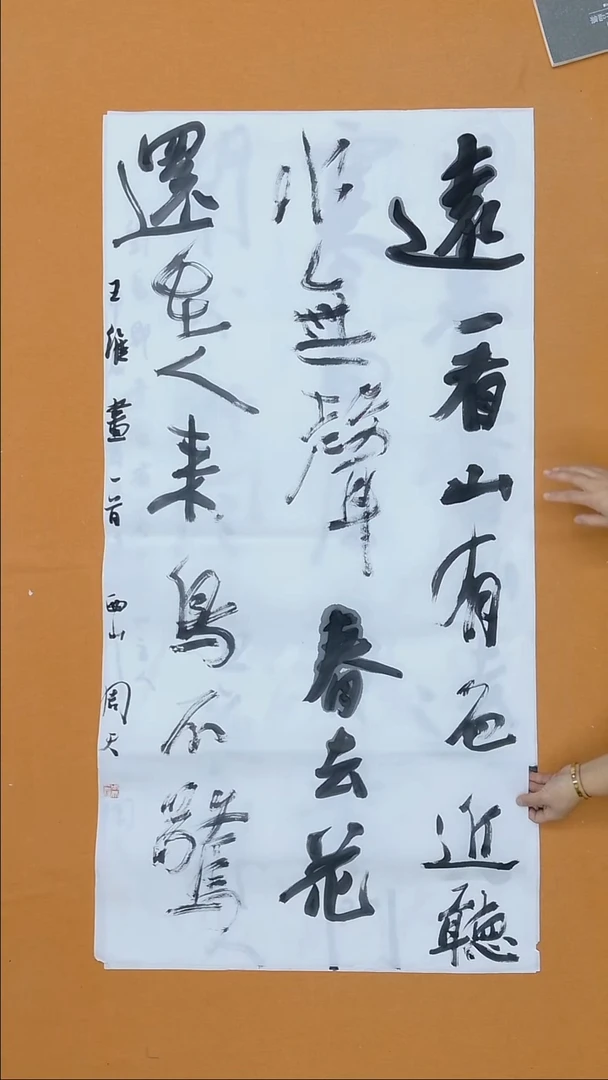 遠看山有色近聽
水無聲春去花
還在人来鳥不驚
王維畫一首 西山周天